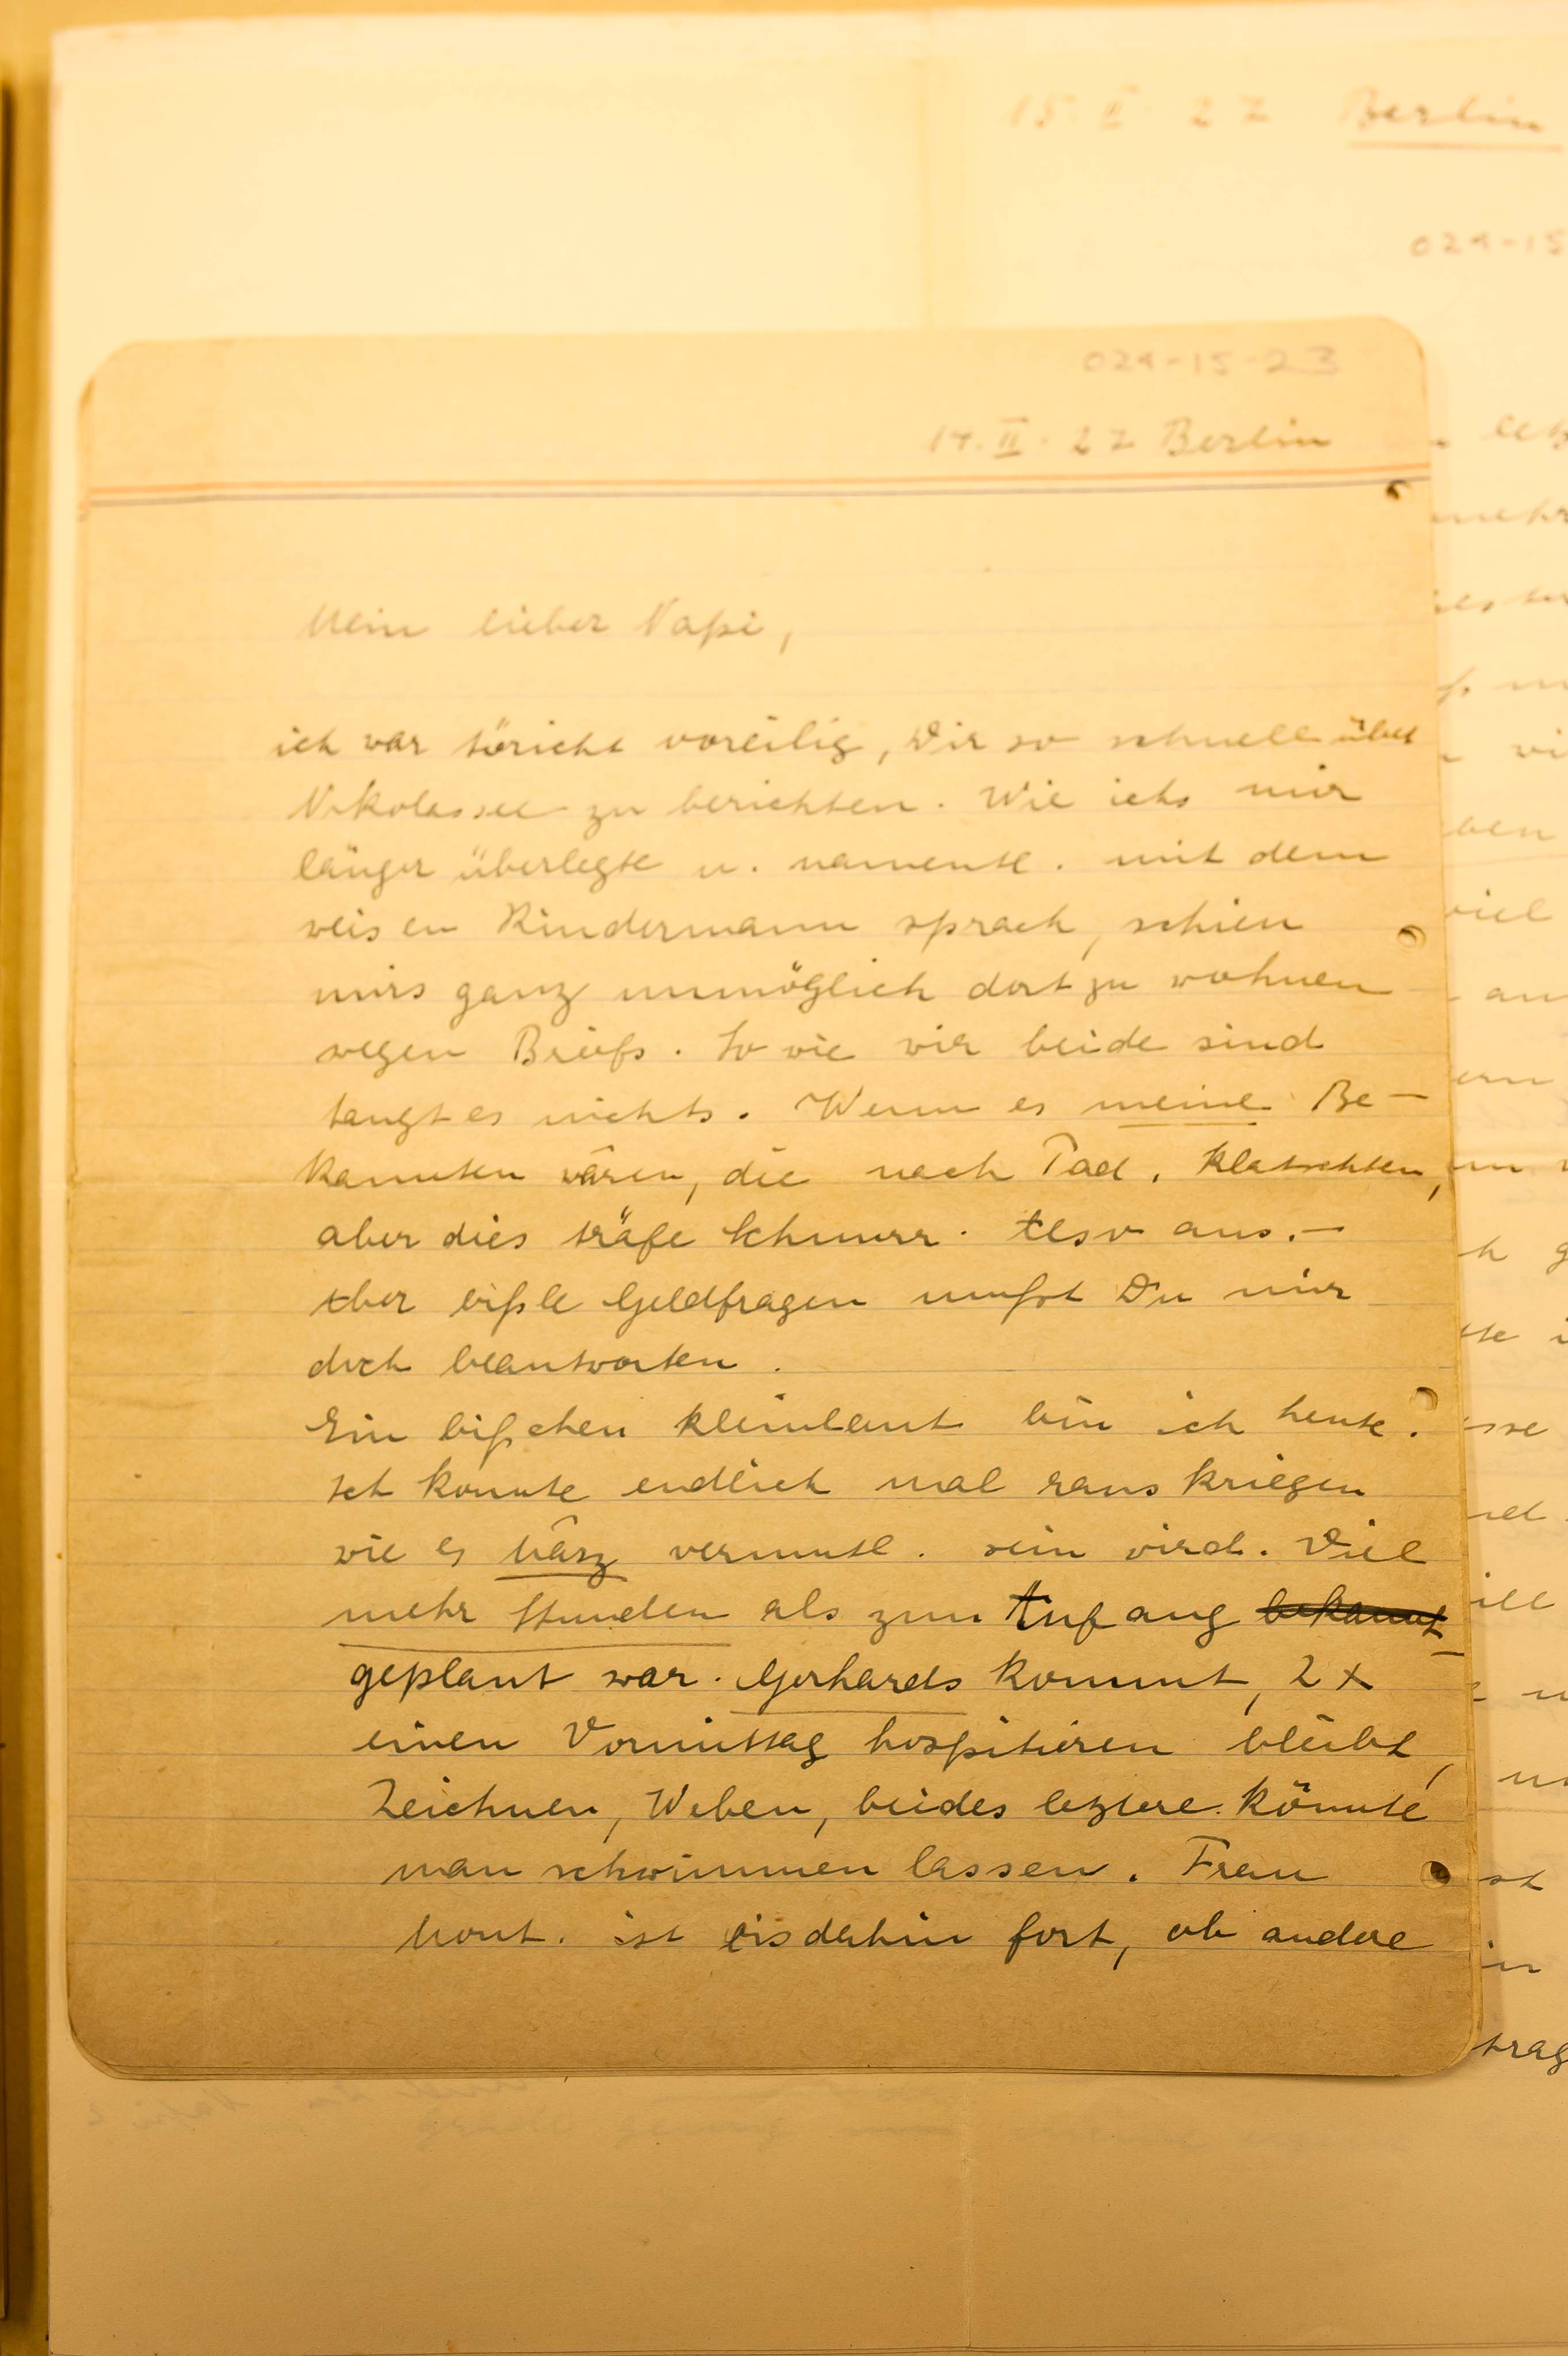 15. II 27 Berlin
024-15
024-15-23
17. II. 27 Berlin
Mein lieber Napi,
ich war töricht voreilig, Dir so schnell über
Nikolassee zu berichten. Wie ichs mir
länger überlegte u. namentl. mit dem
weisen Kindermann sprach, schien
mirs ganz unmöglich dort zu wohnen
wegen Briefs. So wie wir beide sind
taugt es nichts. Wenn es meine Be-
kannten wären, die nach Tad. klatschten,
aber dies träfe Schnurr. Also aus.-
Aber bißle Geldfragen mußt Du mir
doch beantworten.
Ein bißchen kleinlaut bin ich heute.
Ich konnte endlich mal raus kriegen
wie es März vermutl. sein wird. Viel
mehr Stunden als zum Anfang bekannt
geplant war. Gerhards kommt, 2 x
einen Vormittag hospitieren bleibt,
Zeichnen, Weben, beides leztere könnte
man schwimmen lassen. Frau
Mont. ist bis dahin fort, ob andere